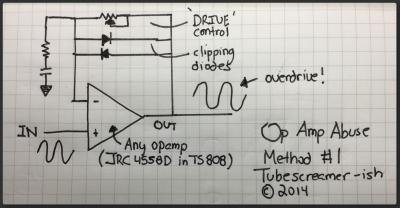 'DRIVE'
control
clipping
diodes
overdrive!
-
+
IN
OUT
Any opamp
(JRC 4558D in TS808)
Op Amp Abuse
Method #1
Tubescreamer-ish
© 2014